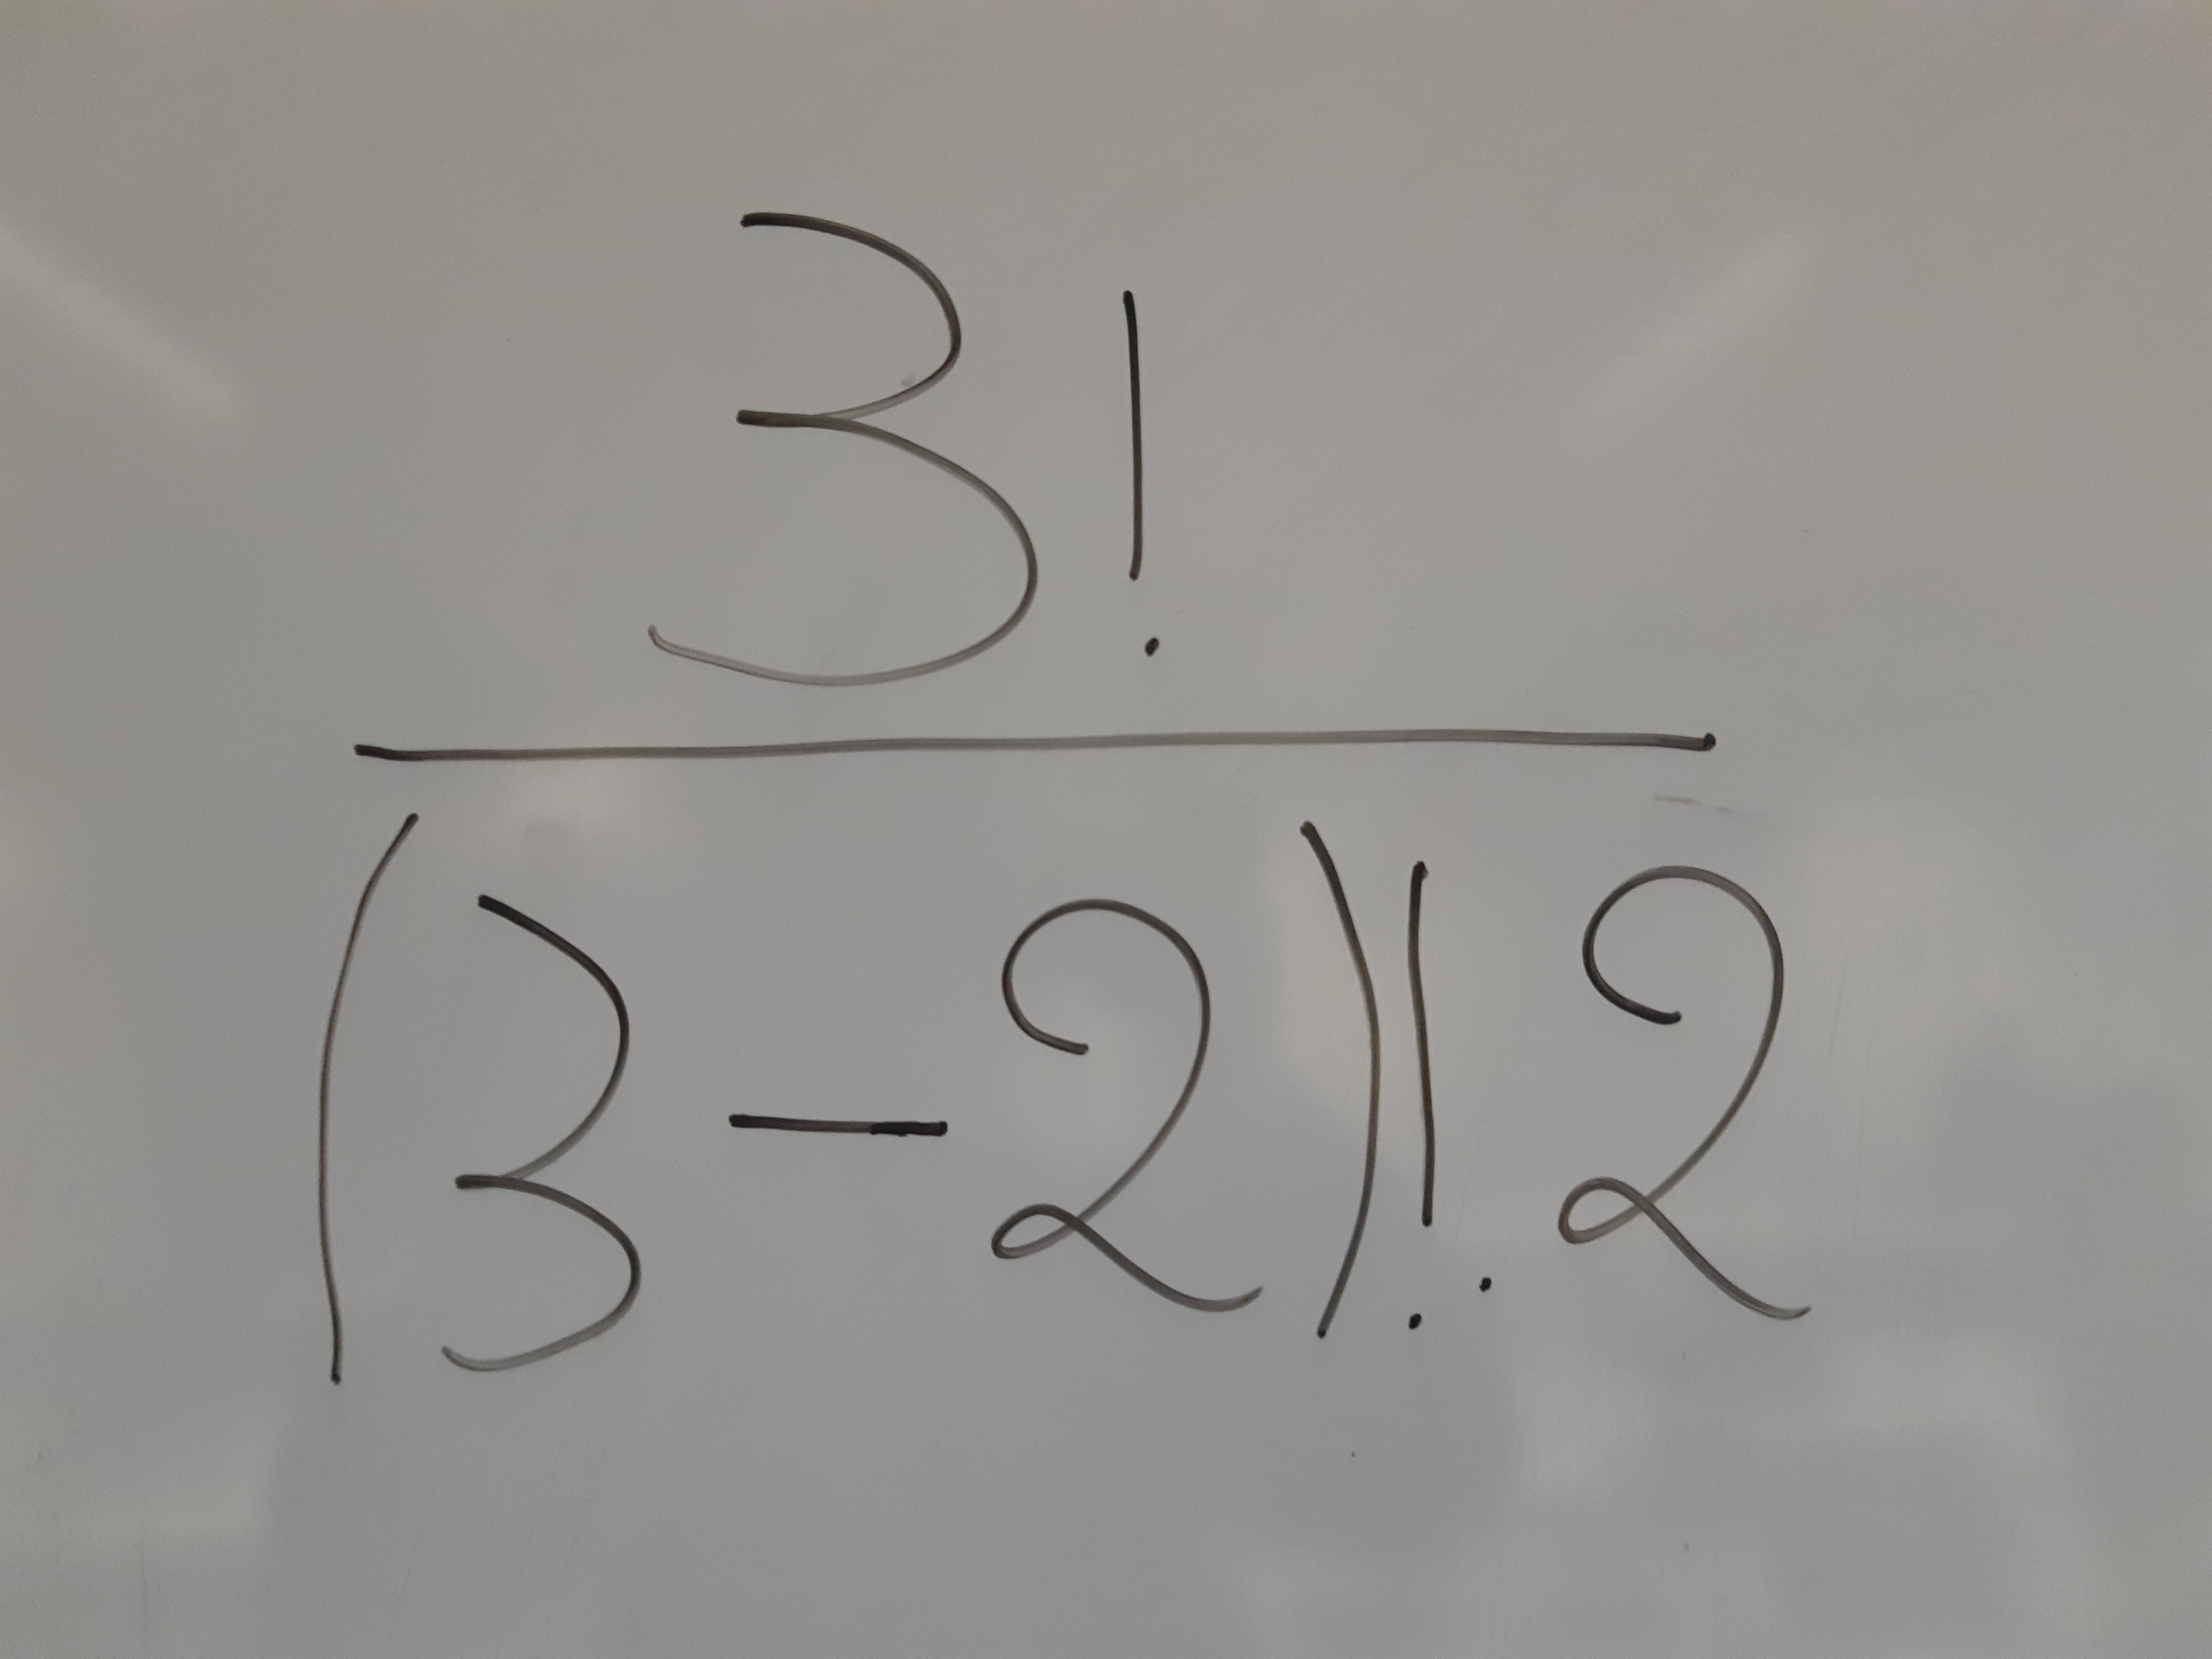 3!
(3-2)!.2